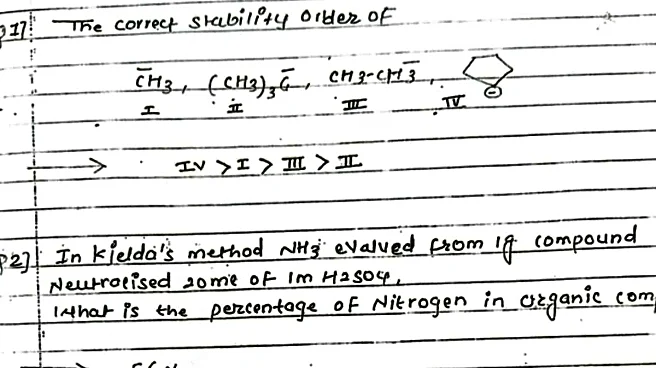 1] The correct stability Order of
C̄H3, (CH3)3C̄, CH3-CH̄3,
I II III IV
→ IV > I > III > II
2] In Kjelda's method NH3 evalved from 1g compound
Neutralised 20me of 1m H2SO4,
What is the percentage of Nitrogen in organic com